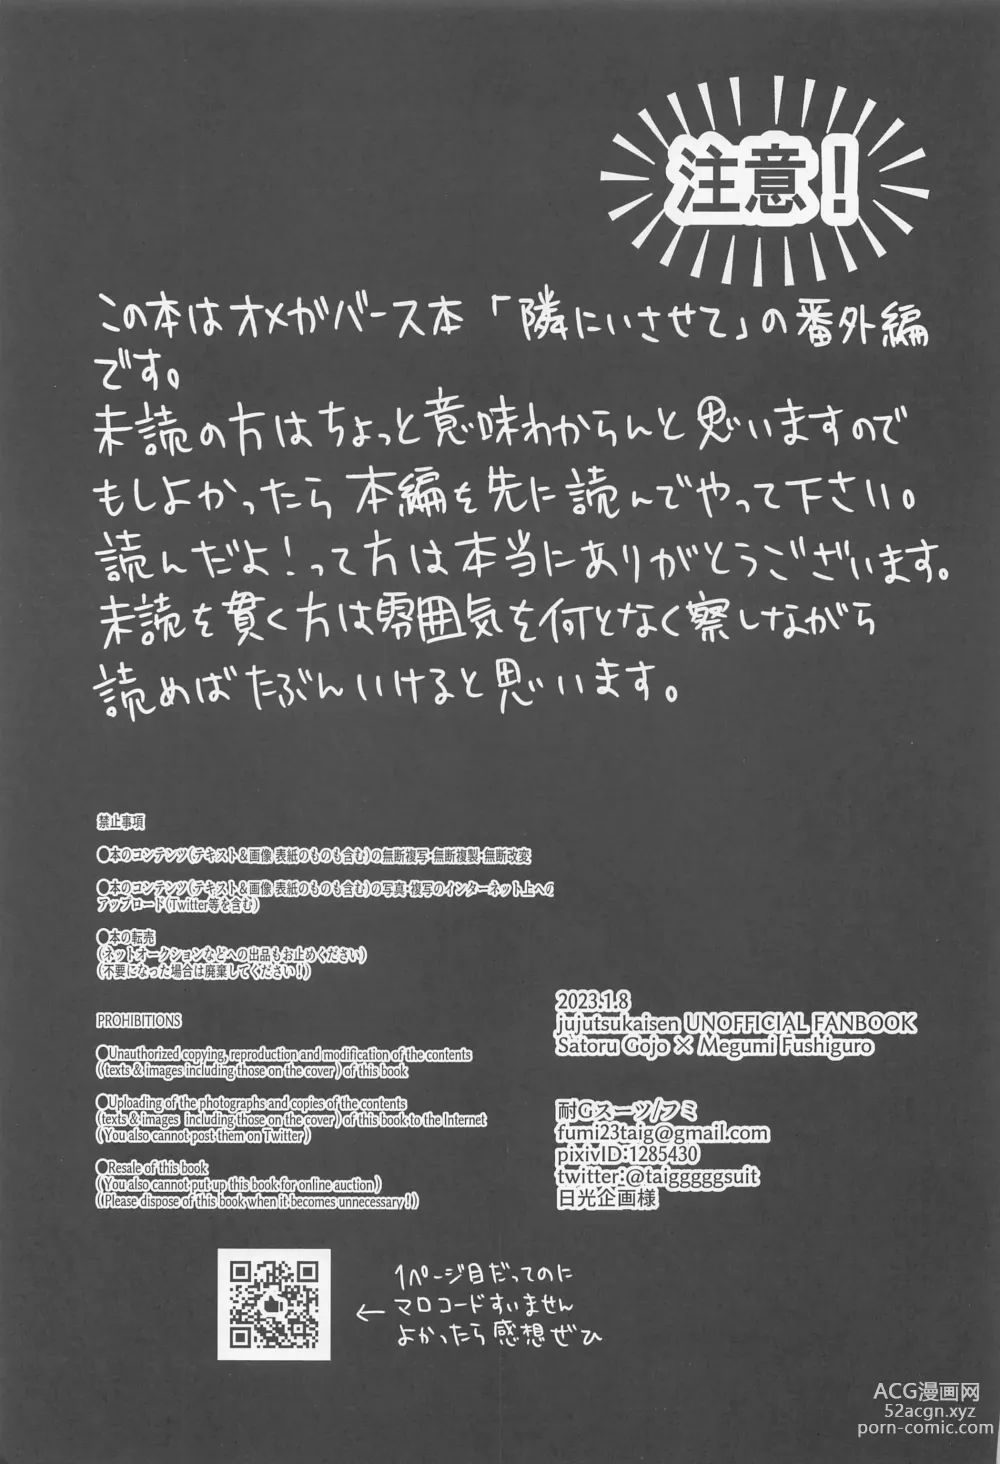 注意!
この本はオメガバース本「隣にいさせて」の番外編
です。
未読の方はちょっと意味わからんと思いますので
もしよかったら本編を先に読んでやって下さい。
読んだよ!って方は本当にありがとうございます。
未読を貫く方は雰囲気を何となく察しながら
読めばたぶんいけると思います。
禁止事項
●本のコンテンツ(テキスト&画像 表紙のものも含む)の無断複写・無断複製・無断改変
●本のコンテンツ(テキスト&画像 表紙のものも含む)の写真・複写のインターネット上への
アップロード(Twitter等を含む)
●本の転売
(ネットオークションなどへの出品もお止めください)
(不要になった場合は廃棄してください!)
PROHIBITIONS
●Unauthorized copying, reproduction and modification of the contents
((texts & images including those on the cover ) of this book
●Uploading of the photographs and copies of the contents
(texts & images including those on the cover ) of this book to the Internet
( You also cannot post them on Twitter )
●Resale of this book
( You also cannot put up this book for online auction)
((Please dispose of this book when it becomes unnecessary !)
2023.1.8
jujutsukaisen UNOFFICIAL FANBOOK
Satoru Gojo × Megumi Fushiguro
耐Gスーツ/フミ
fumi23taig@gmail.com
pixivID:1285430
twitter:@taigggggsuit
日光企画様
←
1ページ目だってのに
マロコードすいません
よかったら感想ぜひ
ACG漫画网
52acgn.xyz
porn-comic.com